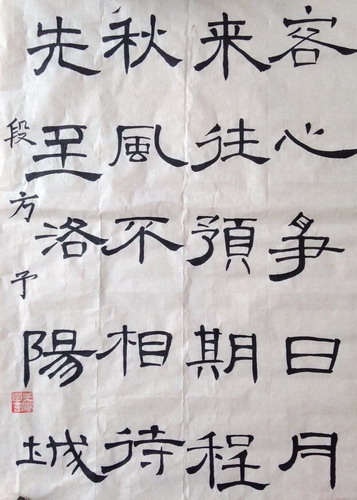 客心争日月
来往預期程
秋風不相待
先至洛陽城
段方予